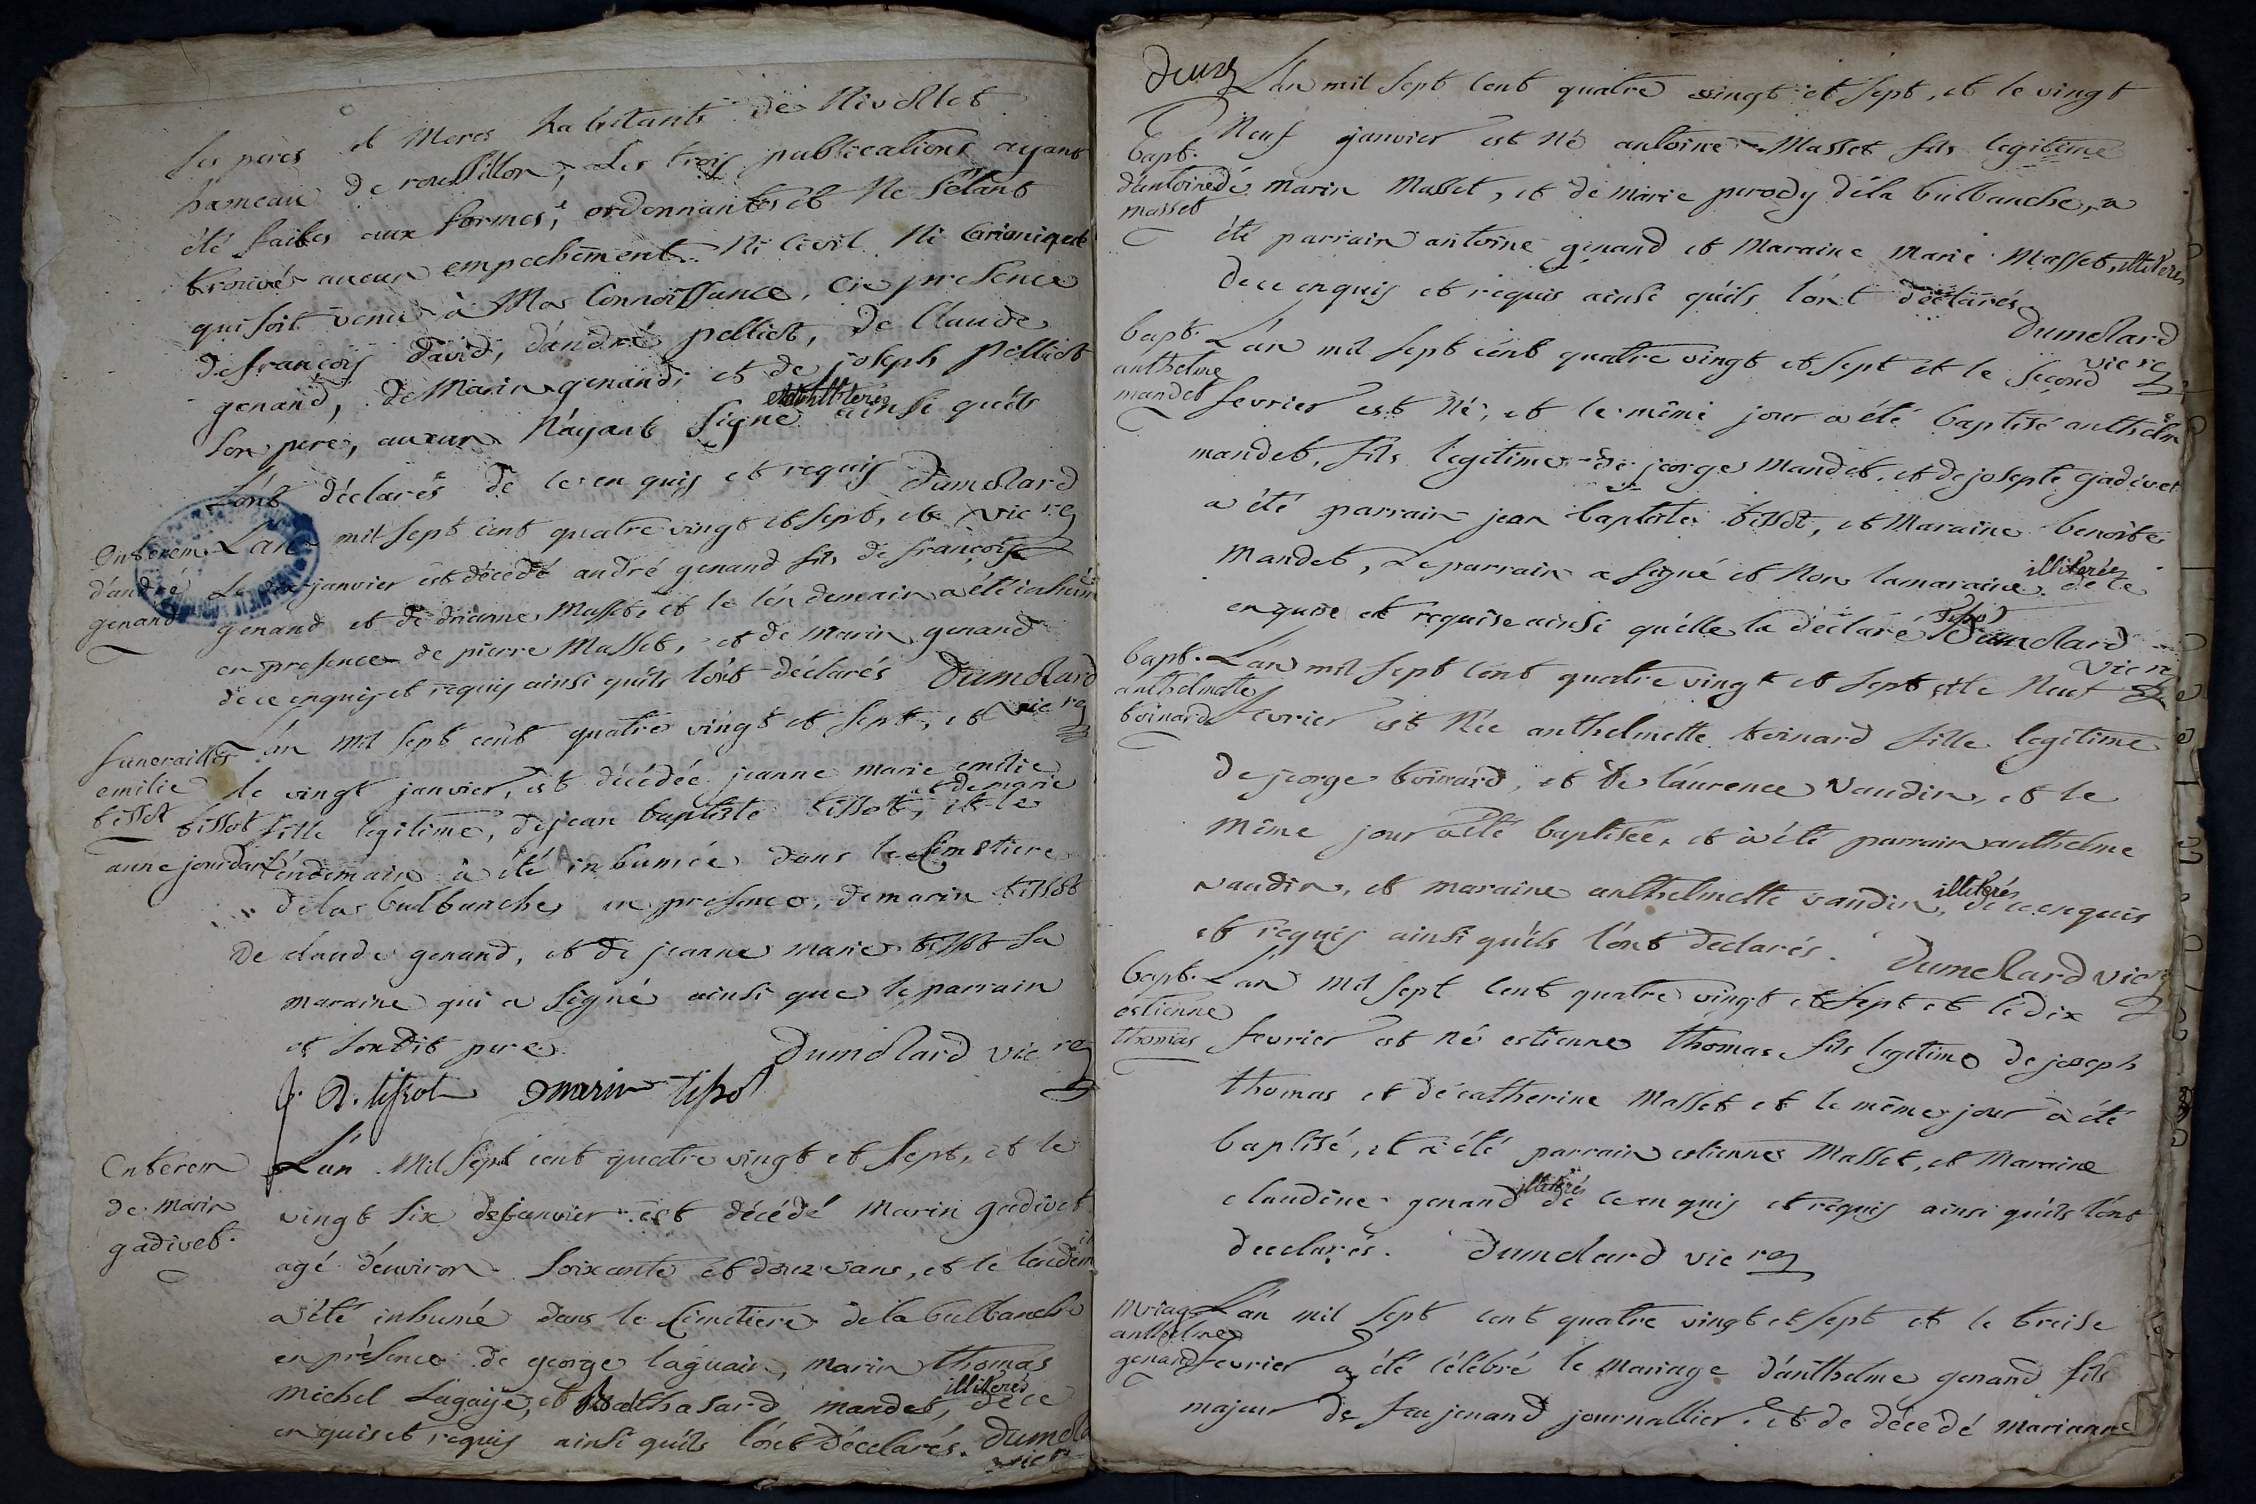 ses peres et meres habitants de Nivollet
hameau de roussillon, Les trois publications ayant
été faites aux formes, ordonnantes et Ne s'étant
trouvé aucun empechement Ni Civil Ni Canonique
qui soit venu à Ma Connoissance, en presence
de françois david, d'andré pelliet, de Claude
genand, de Marin genand, et de joseph pelliet
son pere, aucun N'ayant Signé illiteres ainsi qu'ils
l'ont déclarés de ce enquis et requis Dumollard
vic rg
Enterem
d'andré
genand
L'an mil sept cent quatre vingt et sept, et
Le janvier est décédé andré genand fils de françois
genand et de Masset, et le lendemain a été inhumé
en presence de pierre Masset, et de marin genand
de ce enquis et requis ainsi qu'ils l'ont déclarés Dumollard
vic rg
funerailles
emilie
tissot
L'an mil sept cent quatre vingt et sept, et
le vingt janvier, est décédée jeanne marie emilie
tissot fille legitime, de jean baptiste tissot, et de marie
anne jourdan et le
lendemain a été inhumée dans le Cimetiere
de la bulbanche, en presence, de marin tissot
De claude genand, et de jeanne marie tissot sa
maraine qui a signé ainsi que le parrain
et son dit pere. Dumollard vic rg
J. B. tissot marin tissot
Enterem
de Marin
gadivet.
L'an Mil Sept cent quatre vingt et sept, et le
vingt six de janvier est décédé Marin gadivet
agé d'environ soixante et douze ans, et le lendem
a été inhumé dans le Cimetiere de la bulbanche
en présence de george laguain, marin thomas
michel Lagaije, et Balthasard mandet, illiterés de ce
enquis et requis ainsi qu'ils l'ont déclarés. Dumolla
vic rg
deux
Bapt.
d'antoine
masset
L'an mil sept cent quatre vingt et sept, et le vingt
Neuf janvier est Né antoine Masset fils legitime
de marin Masset, et de marie perody de la bulbanche, a
été parrain antoine genand et maraine marie Masset, illiteres
de ce enquis et requis ainsi qu'ils l'ont déclarés
Dumollard
vic rg
bapt.
anthelme
mandet
L'an mil sept cent quatre vingt et sept et le second
fevrier est Né, et le même jour a été baptisé anthelm
mandet, fils legitime de jeorge mandet, et de josepte gadivet
a été parrain jean baptiste tissot, et Maraine benoite
Mandet, Le parrain a signé et Non la maraine illiterée de ce
enquise et requise ainsi qu'elle la déclaré Tissot Dumollard
vic rg
bapt.
anthelmette
toinard
L'an mil sept cent quatre vingt et sept et le Neuf
fevrier est Née anthelmette toinard fille legitime
de jeorge toinard, et de laurence Vaudin, et le
même jour a été baptisée, et a été parrain anthelme
vaudin, et maraine anthelmette vaudin, illiterés de ce enquis
et requis ainsi qu'ils l'ont declarés. Dumollard vic rg
bapt.
estienne
thomas
L'an mil sept cent quatre vingt et sept et le dix
fevrier est né estienne thomas fils legitime de joseph
thomas et de catherine Masset et le même jour a été
baptisé, et a été parrain estienne Masset, et Maraine
claudine genand illiterés de ce enquis et requis ainsi qu'ils l'ont
declarés. Dumollard vic rg
Mriage
anthelme
genand
L'an mil sept cent quatre vingt et sept et le treise
fevrier a été célébré le mariage d'anthelme genand fils
majeur de feu jenand journallier. et de décédé marianne